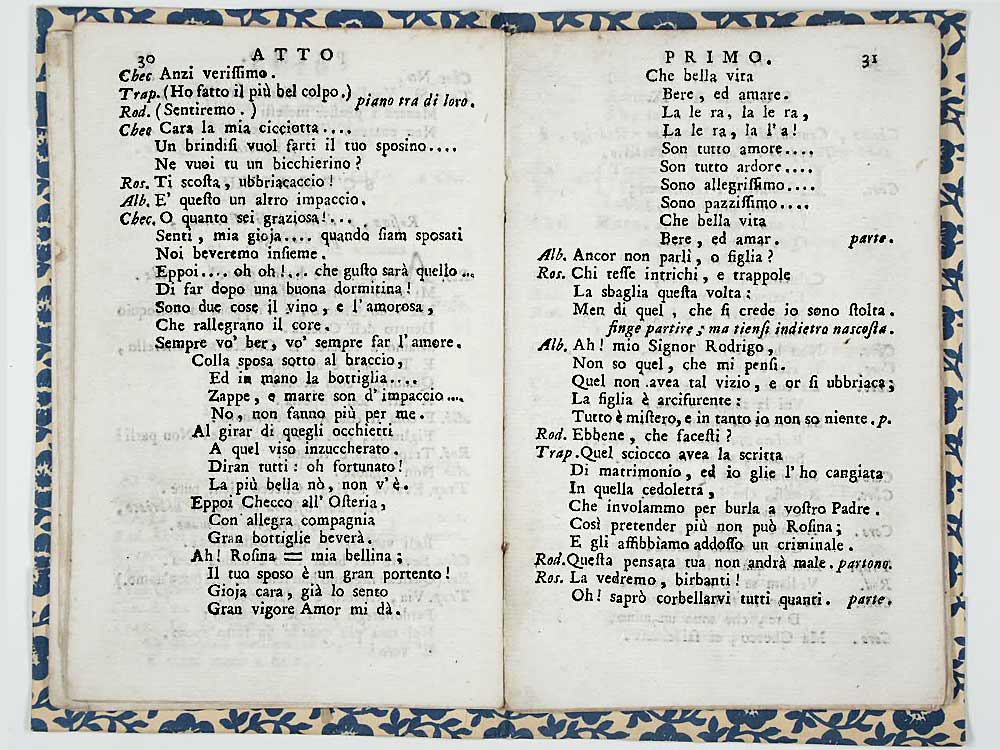 30 ATTO
Chec Anzi verissimo.
Trap. (Ho fatto il più bel colpo.)
piano tra di loro.
Rod. (Sentiremo.)
Chec Cara la mia cicciotta....
Un brindisi vuol farti il tuo sposino....
Ne vuoi tu un bicchierino?
Ros. Ti scosta, ubbriacaccio!
Alb. E' questo un altro impaccio.
Chec. O quanto sei graziosa!...
Senti, mia gioja.... quando siam sposati
Noi beveremo insieme.
Eppoi.... oh oh!... che gusto sarà quello....
Di far dopo una buona dormitina!
Sono due cose il vino, e l'amorosa,
Che rallegrano il core.
Sempre vo' ber, vo' sempre far l'amore.
Colla sposa sotto al braccio,
Ed in mano la bottiglia....
Zappe, e marre son d'impaccio....
No, non fanno più per me.
Al girar di quegli occhietti
A quel viso inzuccherato.
Diran tutti: oh fortunato!
La più bella nò, non v'è.
Eppoi Checco all'Osteria,
Con allegra compagnia
Gran bottiglie beverà.
Ah! Rosina = mia bellina;
Il tuo sposo è un gran portento!
Gioja cara, già lo sento
Gran vigore Amor mi dà.
PRIMO. 31
Che bella vita
Bere, ed amare.
La le ra, la le ra,
La le ra, la l'a!
Son tutto amore....
Son tutto ardore....
Sono allegrissimo....
Sono pazzissimo....
Che bella vita
Bere, ed amar. parte.
Alb. Ancor non parli, o figlia?
Ros. Chi tesse intrichi, e trappole
La sbaglia questa volta:
Men di quel, che si crede io sono stolta.
finge partire; ma tiensi indietro nascosta.
Alb. Ah! mio Signor Rodrigo,
Non so quel, che mi pensi.
Quel non avea tal vizio, e or si ubbriaca;
La figlia è arcisurente:
Tutto è mistero, e in tanto io non so niente. p.
Rod. Ebbene, che facesti?
Trap. Quel sciocco avea la scritta
Di matrimonio, ed io glie l'ho cangiata
In quella cedoletta,
Che involammo per burla a vostro Padre.
Così pretender più non può Rosina;
E gli affibbiamo addosso un criminale.
Rod. Questa pensata tua non andrà male. partono.
Ros. La vedremo, birbanti!
Oh! saprò corbellarvi tutti quanti. parte.